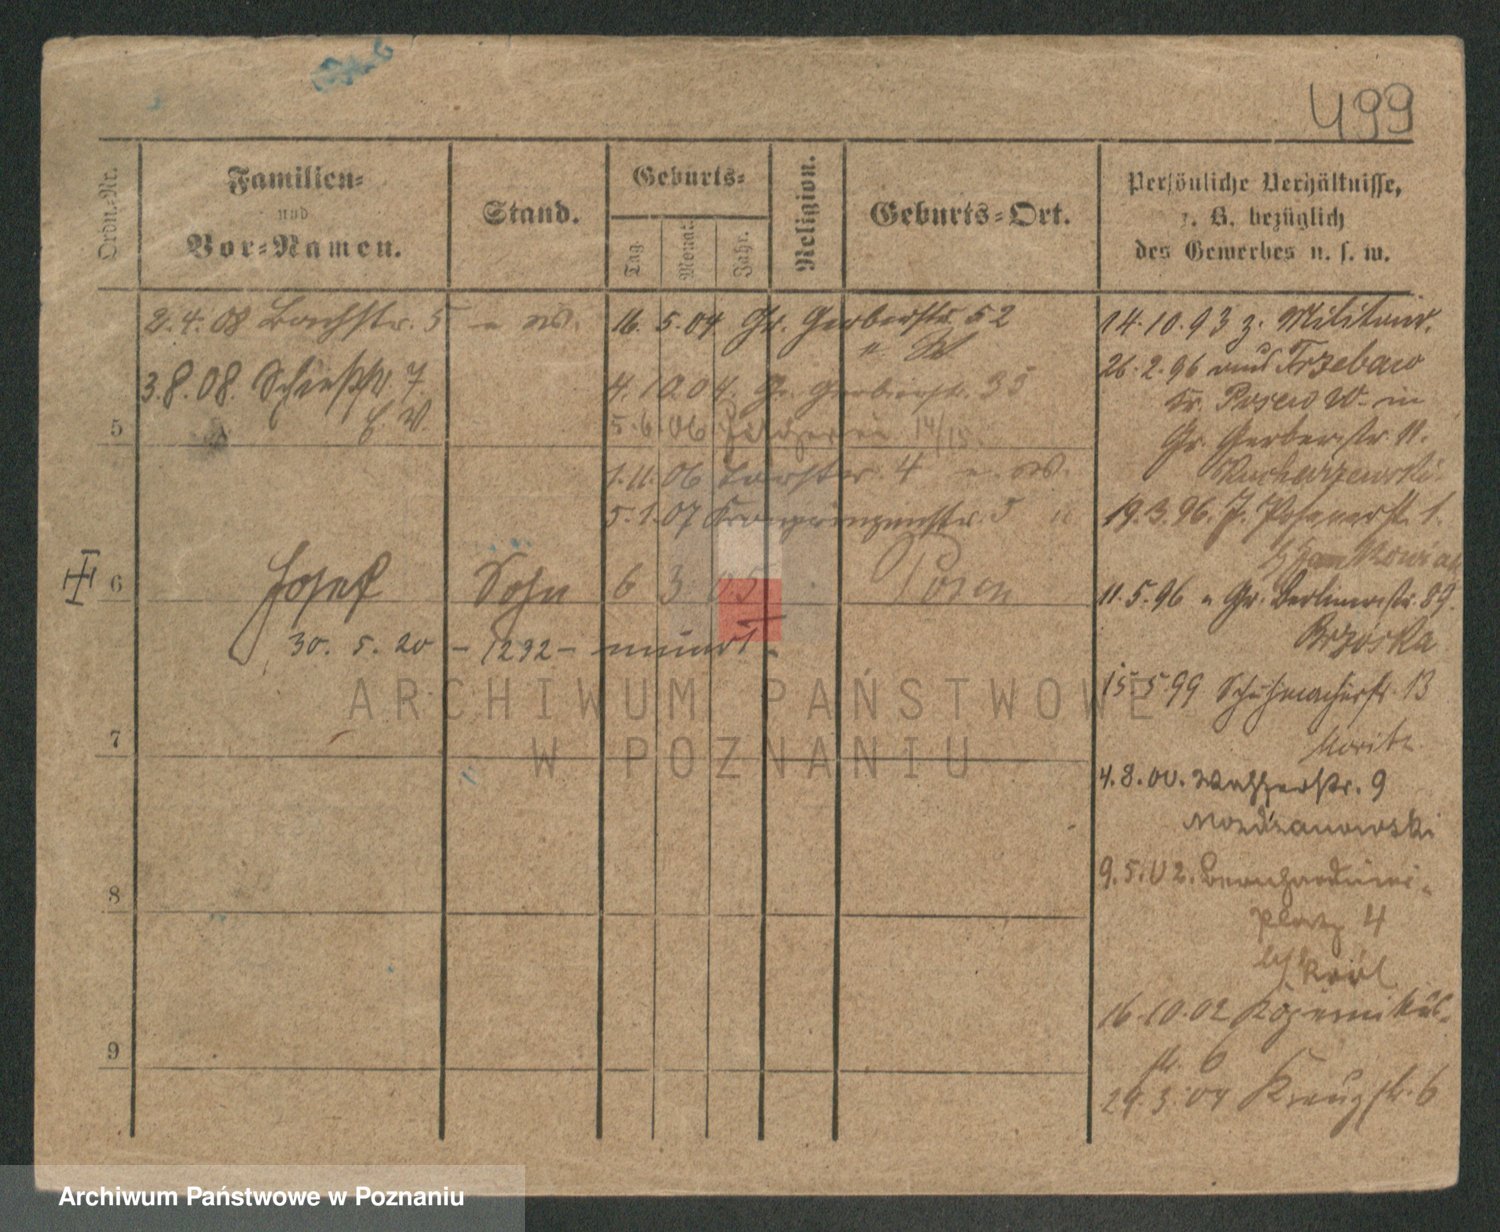 499
Ordn.-Nr.
Familien-
und
Vor-Namen.
Stand.
Geburts-
Tag.
Monat.
Jahr.
Religion.
Geburts-Ort.
Persönliche Verhältnisse,
z. B. bezüglich
des Gewerbes u. s. w.
2.4.08 Bachstr. 5
16.5.04 Gr. Gerberstr. 52
3.8.08. Schießstr 7
4.10.04. Gr. Gerberstr. 35
5
5.6.06 14/15.
1.11.06 Torstr. 4
5.1.07 Kronprinzenstr. 5
6 Josef Sohn 6 3 05 Posen
30. 5. 20 - 1292 -
7
8
9
14.10.93 z. Militair.
26.2.96 aus Trzebaw
Kr. Posen W. in
Gr. Gerberstr. 11.
Kucharzewski.
19.3.96. Posenerstr. 1.
11.5.96 " Gr. Berlinerstr. 89.
Brzoska
15.5.99 Schuhmacherstr. 13
Moritz
4.8.00. Wasserstr. 9
Mozdzanowski
9.5.02. Bernhardiner-
platz 4
b/ Król
16.10.02 Kopernikus-
str. 6
29.3.04 Kreuzstr. 6
ARCHIWUM PAŃSTWOWE
W POZNANIU
Archiwum Państwowe w Poznaniu